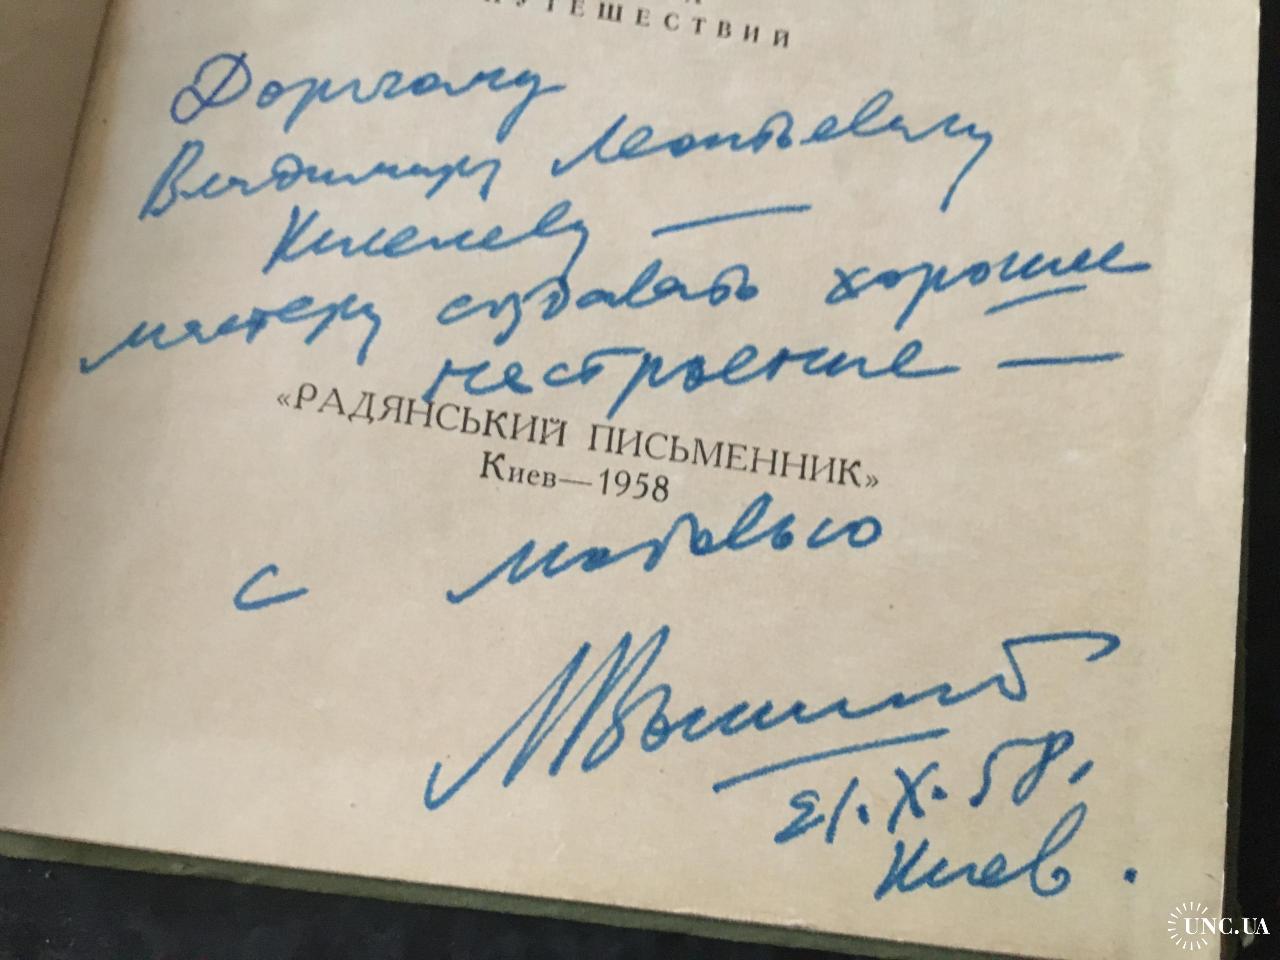 ПУТЕШЕСТВИЙ
Дорогому
Владимиру Леонтьевичу
Киселеву —
мастеру создавать хорошее
настроение —
«РАДЯНСЬКИЙ ПИСЬМЕННИК»
Киев—1958
с любовью
21.X.58,
Киев.
UNC.UA